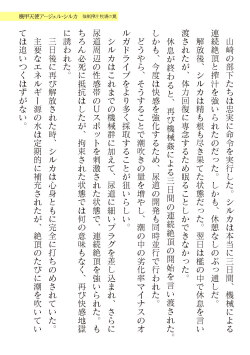 機甲天使アージェル・シルカ
山崎の部下たちは忠実に命令を実行した。シルカは本当に三日間、機械による
連続絶頂と搾汁を強いられたのだった。しかも、休憩なしのぶっ通しだ。
解放後、シルカは精も根も尽き果てた状態だった。翌日は檻の中で休息を言い
渡されたが、体力と意識を多少回復させることしかできなかった。
休息が終わると、再び機械姦による三日間の連続絶頂の開始を言い渡された。
しかも、今度は快感を強化するため、尿道の開発も同時並行で行われた。
どうやら、そうすることで潮吹きの量を増やし、潮の中の劣化率マイナスのオ
ルガドライブをより多く採取することが狙いらしい。
シルカはこれまでの責めに加えて、尿道に細いプラグを差し込まれ、さらに
尿道周辺の性感帯のUスポットを刺激された状態で、連続絶頂を強いられた。も
ちろん必死に抵抗はしたが、拘束された状態では何の意味もなく、再び快感地獄
に誘われた。
三日後に再び解放された時、シルカは心身ともに完全に打ちのめされていた。
主要なエネルギー源の水は定期的に補充されたが、絶頂のたびに潮を吹いてい
ては追いつくはずがない。